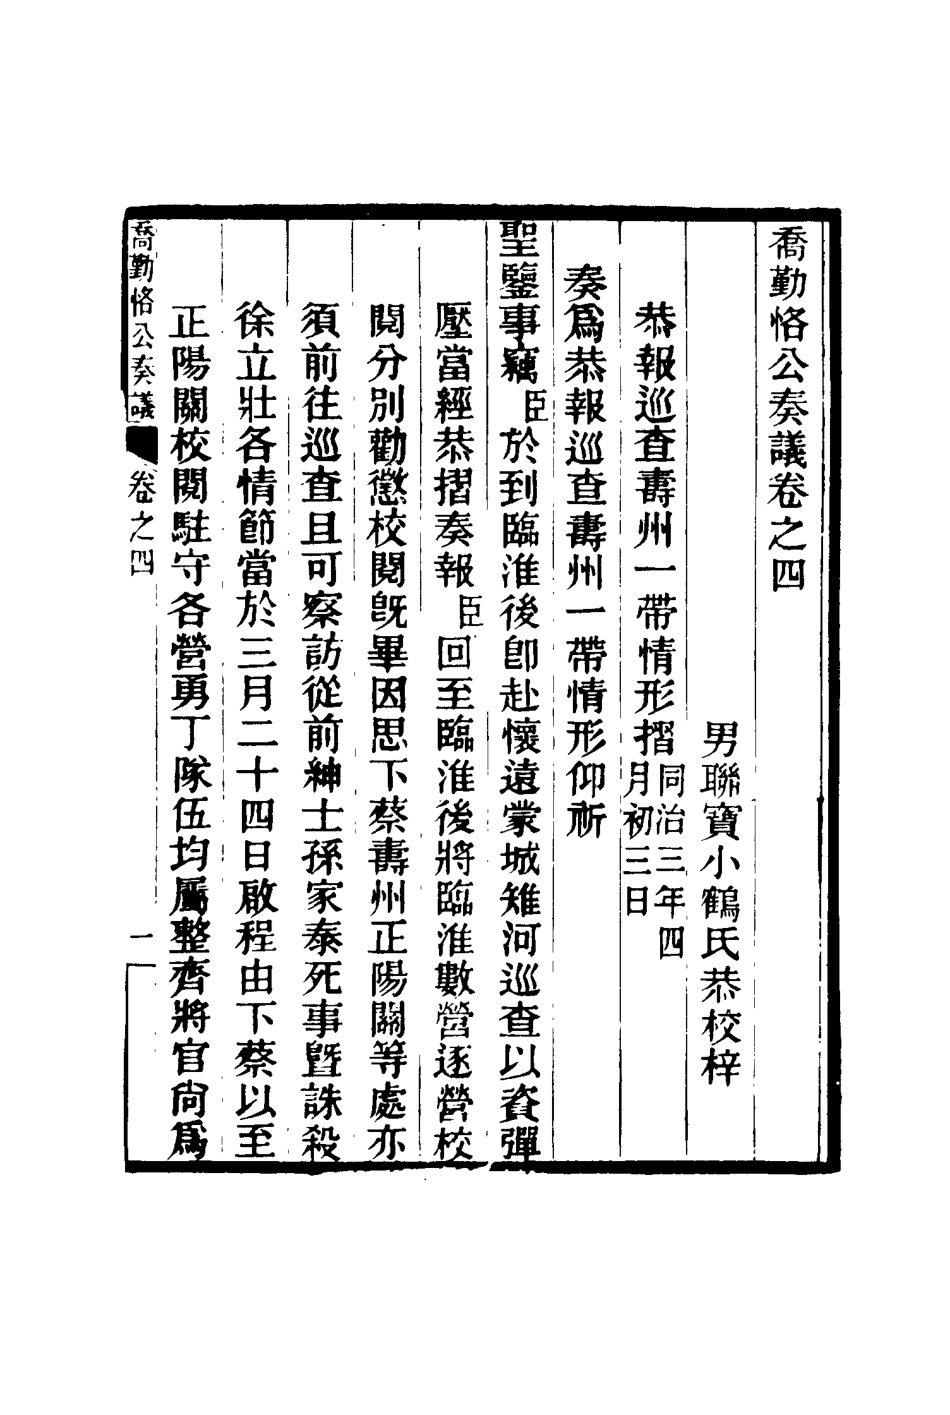 喬勤恪公奏議卷之四
男聯寶小鶴氏恭校梓
恭報巡查壽州一帶情形摺同治三年四月初三日
奏爲恭報巡查壽州一帶情形仰祈
聖鑒事竊臣於到臨淮後卽赴懷遠蒙城雉河巡查以資彈
壓當經恭摺奏報臣回至臨淮後將臨淮數營逐營校
閱分別勸懲校閱旣畢因思下蔡壽州正陽關等處亦
須前往巡查且可察訪從前紳士孫家泰死事曁誅殺
徐立壯各情節當於三月二十四日啟程由下蔡以至
正陽關校閱駐守各營勇丁隊伍均屬整齊將官尙爲
喬勤恪公奏議 卷之四 一